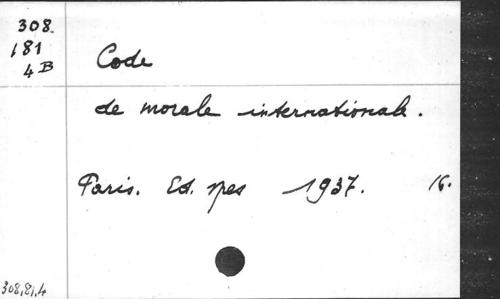 308.
181
4B
Code
de morale internationale.
Paris. Ed. spes 1937. 16.
308,81,4